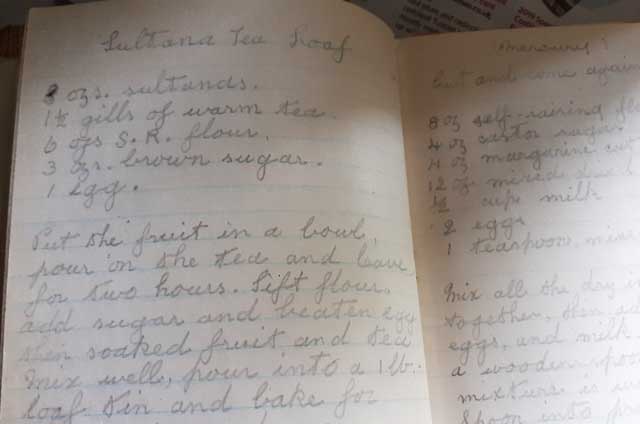 Sultana Tea Loaf
8 ozs. sultanas.
1½ gills of warm tea.
6 ozs S.R. flour.
3 ozs. brown sugar.
1 egg.
Put the fruit in a bowl,
pour on the tea and leave
for two hours. Sift flour,
add sugar and beaten egg
then soaked fruit and tea
Mix well, pour into a 1 lb.
loaf tin and bake for
cut and come again
8 oz self-raising
4 oz castor sugar
4 oz margarine
12 oz mixed
½ cup milk
2 eggs
1 teaspoon
Mix all the dry
together, then
eggs, and milk
a wooden
mixture is
Spoon into